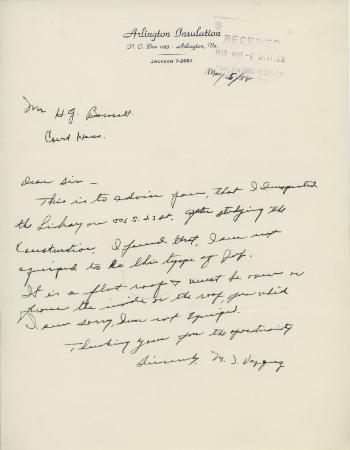 Arlington Insulation
P. O. Box 1053 - Arlington, Va.
JACKSON 7-2983
RECEIVED
MAY -7
May 5/58
Mr H.G.
Court House.
Dear Sir -
This is to advise you, that I Inspected
the Library on S. 23 St. After studying the
Construction, I found that, I am not
equiped to do this type of Job.
It is a flat roof & must be over or
from the inside or the roof, for which
I am sorry, Iam not Equiped.
Thanking you for the oportunity
Sincerely, M. J.